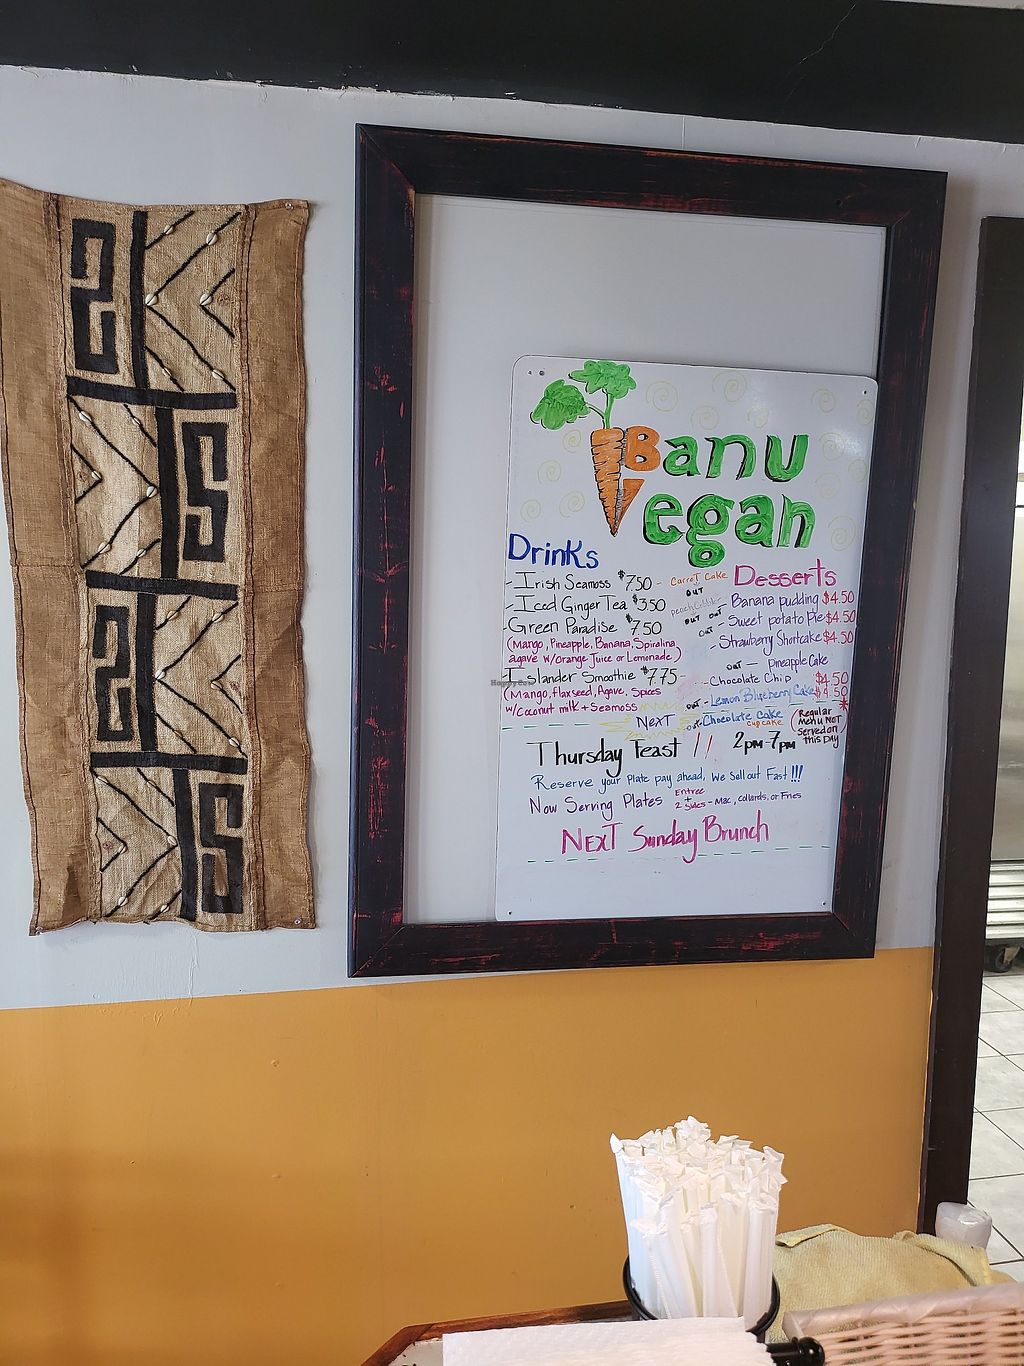 Banu
Vegan
Drinks
- Irish Seamoss $7.50
- Iced Ginger Tea $3.50
- Green Paradise $7.50
(Mango, Pineapple, Banana, Spiralina,
agave w/Orange Juice or Lemonade)
Islander Smoothie $7.75
(Mango, flaxseed, Agave, Spices
w/Coconut milk + Seamoss
Desserts
- Carrot Cake
out
peach Cobbler
out
- Banana pudding $4.50
out
- Sweet potato Pie $4.50
out
- Strawberry Shortcake $4.50
out - Pineapple Cake
- Chocolate Chip $4.50
out - Lemon Blueberry Cake $4.50
out - Chocolate Cake
cupcake
(Regular
Menu NOT
served on
this Day)
NexT
Thursday Feast !! 2pm-7pm
Reserve your Plate pay ahead, We Sell out Fast!!!
Now Serving Plates Entree
+
2 Sides - Mac, collards, or Fries
NexT Sunday Brunch
HappyCow